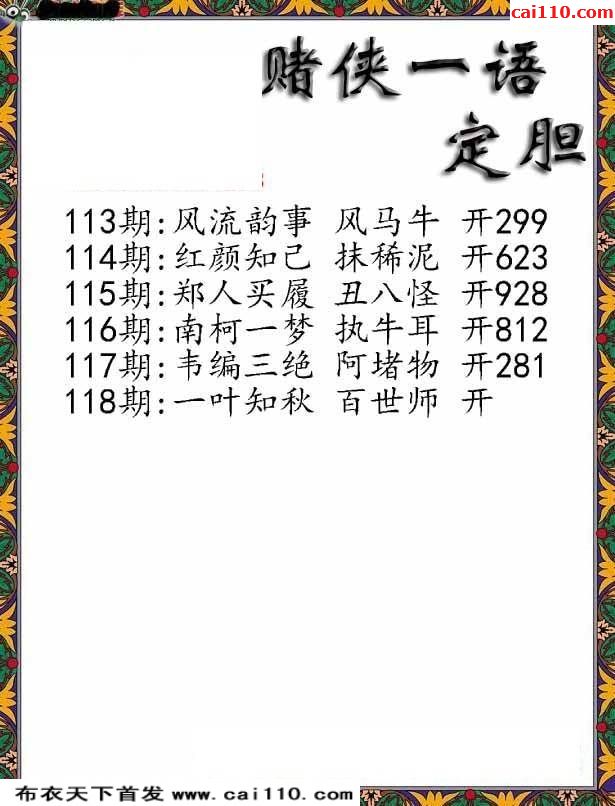 cai110.com
赌侠一语
定胆
113期:风流韵事 风马牛 开299
114期:红颜知己 抹稀泥 开623
115期:郑人买履 丑八怪 开928
116期:南柯一梦 执牛耳 开812
117期:韦编三绝 阿堵物 开281
118期:一叶知秋 百世师 开
布衣天下首发 www.cai110.com